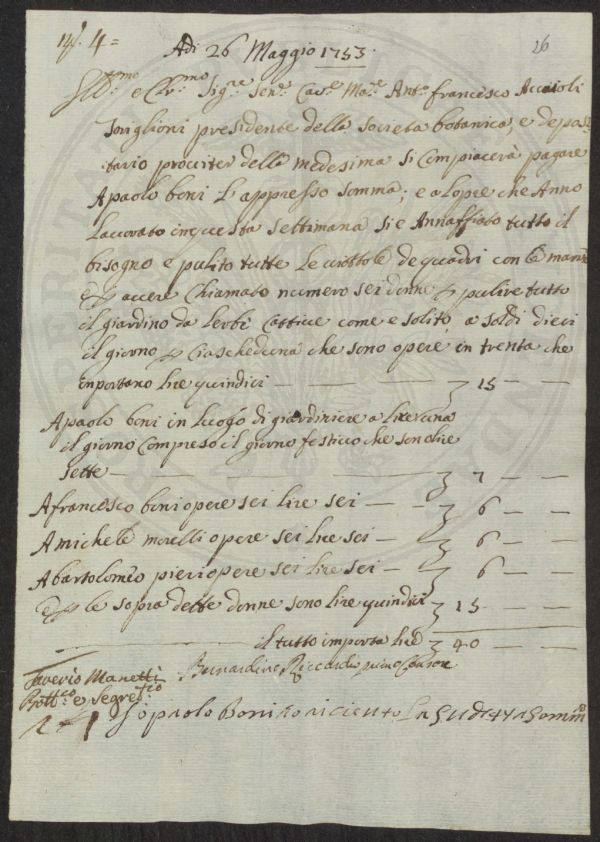 4 =
Adi 26 Maggio 1753.
26
Ill:mo e Cl:mo Sig:re Sen:e Cav:e Ant:o Francesco Acciaioli
Toriglioni presidente della Società botanica, e depos=
itario della medesima si Compiacerà pagare
A paolo boni l'appresso somma; e a lopre che Anno
Lavorato inquesta settimana si e Annaffiato tutto il
bisogno e pulito tutte le viottole de quadri con le
avere Chiamato numero sei donne pulire tutto
il giardino da lerbi Cattive come e solito, a soldi dieci
il giorno Ciascheduna che sono opere in trenta che
inportano lire quindici — 15 — —
A paolo boni in luogo di giardiniere a lire una
il giorno Compreso il giorno festivo che son lire
sette — 7 — —
A francesco boni opere sei lire sei — 6 — —
A michele morelli opere sei lire sei — 6 — —
A bartolomeo pieri opere sei lire sei — 6 — —
E le sopra dette donne sono lire quindici 15 — —
il tutto importa lire 40 — —
Saverio Manetti Bernardino Riccardi primo Consore
Segret:co
Io paolo Boni o riceuto La Sudetta Somma